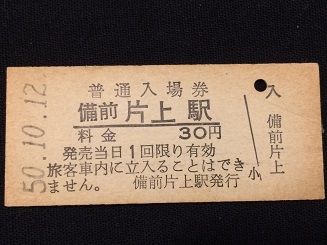 50.10.12
普通入場券
備前片上駅
料金 30円
発売当日1回限り有効
旅客車内に立入ることはでき
ません。 備前片上駅発行
小
入 備前片上